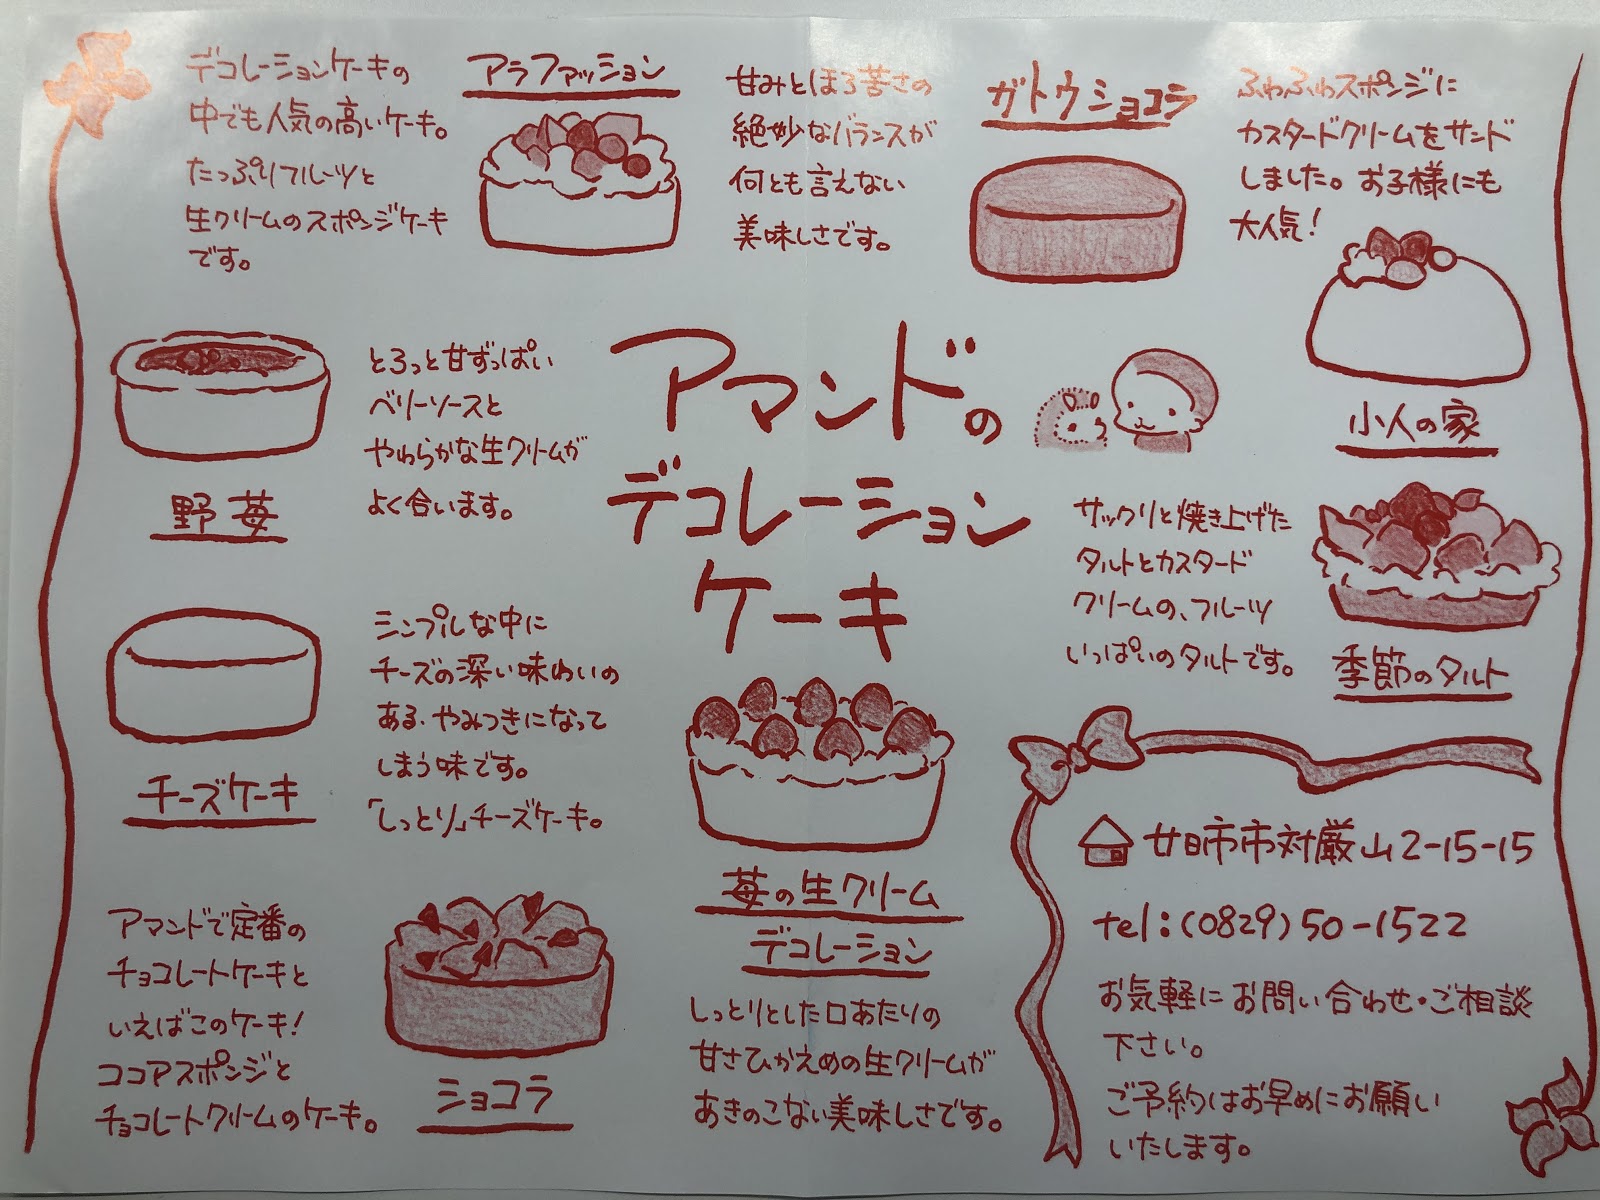 デコレーションケーキの
中でも人気の高いケーキ。
たっぷりフルーツと
生クリームのスポンジケーキ
です。
アラファッション
甘みとほろ苦さの
絶妙なバランスが
何とも言えない
美味しさです。
ガトウショコラ
ふわふわスポンジに
カスタードクリームをサンド
しました。お子様にも
大人気!
小人の家
野苺
とろっと甘ずっぱい
ベリーソースと
やわらかな生クリームが
よく合います。
アマンドの
デコレーション
ケーキ
サックリと焼き上げた
タルトとカスタード
クリームの、フルーツ
いっぱいのタルトです。
季節のタルト
チーズケーキ
シンプルな中に
チーズの深い味わいの
ある、やみつきになって
しまう味です。
「しっとり」チーズケーキ。
苺の生クリーム
デコレーション
しっとりとした口あたりの
甘さひかえめの生クリームが
あきのこない美味しさです。
アマンドで定番の
チョコレートケーキと
いえばこのケーキ!
ココアスポンジと
チョコレートクリームのケーキ。
ショコラ
廿日市市対厳山2-15-15
tel:(0829)50-1522
お気軽にお問い合わせ・ご相談
下さい。
ご予約はお早めにお願い
いたします。